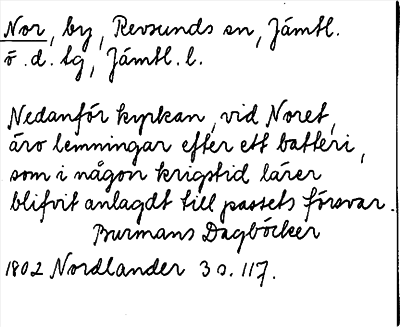 Nor, by, Revsunds sn, Jämtl.
ö. d. lg, Jämtl. l.
Nedanför kyrkan, vid Noret,
äro lemningar efter ett batteri,
som i någon krigstid lärer
blifvit anlagdt till passets försvar.
Burmans Dagböcker
1802 Nordlander 3 s. 117.